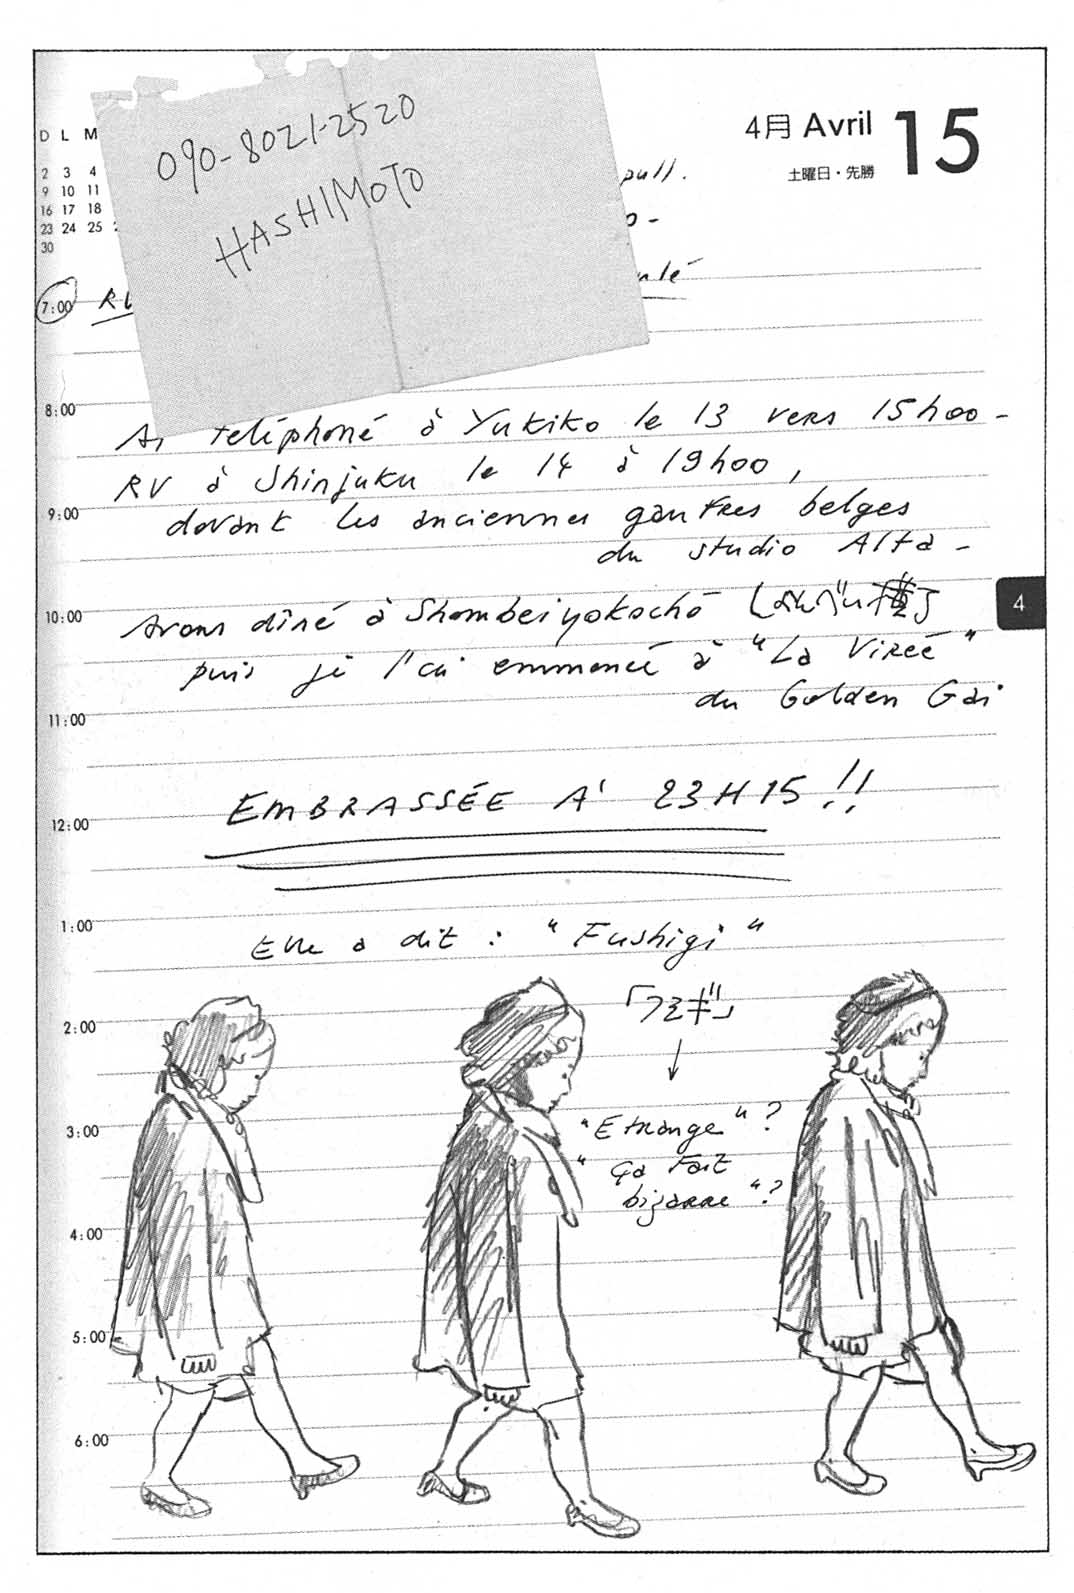 090-8021-2520
HASHIMOTO
D L M
2 3 4
9 10 11
16 17 18
23 24 25 2
30
4月 Avril 15
土曜日・先勝
pull.
7:00 RV
8:00
Ai téléphoné à Yukiko le 13 vers 15h00-
RV à Shinjuku le 14 à 19h00,
9:00
devant les anciennes gaufres belges
du studio Alta-
10:00
Avons dîné à Shombeiyokochō しょんべい横丁
puis je l'ai emmenée à "La Virée"
du Golden Gai
11:00
EMBRASSÉE À 23H15 !!
12:00
1:00
Elle a dit : "Fushigi"
2:00
「フシギ」
↓
3:00
"Etrange" ?
"ça fait
bizarre" ?
4:00
5:00
6:00
4